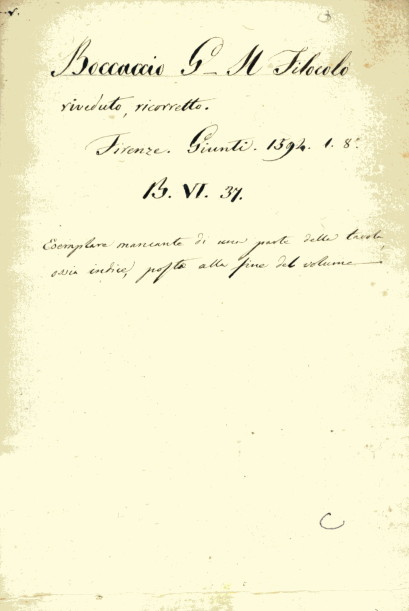 Boccaccio G - Il Filocolo
riveduto, ricorretto.
Firenze. Giunti. 1594. 1. 8°.
B. VI. 37.
Esemplare mancante di una parte della tavola,
ossia indice, posta alla fine del volume
C